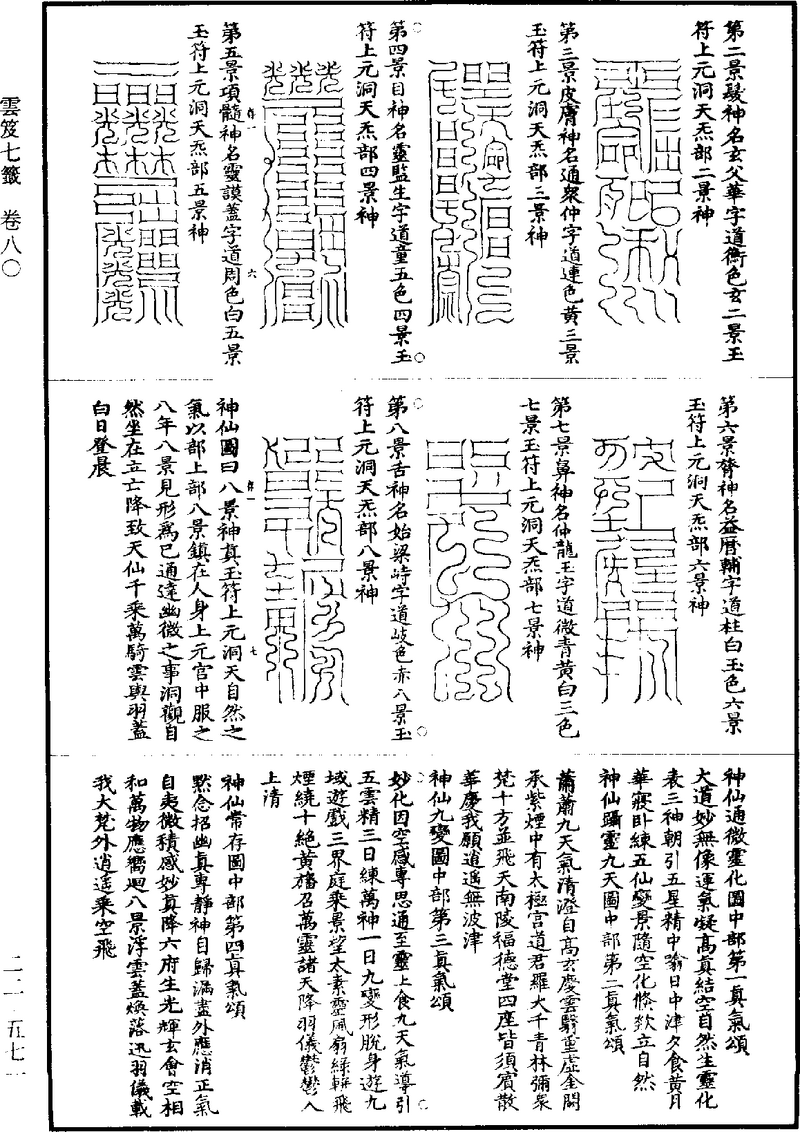 第二景髮神名玄父華字道衡色玄二景玉
符上元洞天炁部二景神
第三景皮膚神名通衆仲字道連色黃三景
玉符上元洞天炁部三景神
第四景目神名靈監生字道童五色四景玉
符上元洞天炁部四景神
第五景項髓神名靈謨蓋字道周色白五景
玉符上元洞天炁部五景神
第六景膂神名益曆輔字道柱白玉色六景
玉符上元洞天炁部六景神
第七景鼻神名仲龍玉字道微青黃白三色
七景玉符上元洞天炁部七景神
第八景舌神名始梁峙字道岐色赤八景玉
符上元洞天炁部八景神
神仙圖曰八景神真玉符上元洞天自然之
氣以部上部八景鎮在人身上元宮中服之
八年八景見形爲已通達幽微之事洞觀自
然坐在立亡降致天仙千乘萬騎雲輿羽蓋
白日登晨
神仙通微靈化圖中部第一真氣頌
大道妙無像運氣凝高真結空自然生靈化
表三神朝引五星精中喻日中津夕食黃月
華寢卧練五仙變景隨空化倏欻立自然
神仙躡靈九天圖中部第二真氣頌
蕭蕭九天氣清澄自高玄慶雲翳重虛金闕
承紫煙中有太極宮道君羅大千青林彌衆
梵十方並飛天南陵福德堂四座皆須賓散
華慶我願逍遥無波津
神仙九變圖中部第三真氣頌
妙化因空感專思通至靈上食九天氣導引
五雲精三日練萬神一日九變形脫身遊九
域遊戲三界庭乘景望太素靈風扇綠軿飛
煙繞十絕黃旛召萬靈諸天降羽儀鬱鬱入
上清
神仙常存圖中部第四真氣頌
默念招幽真專靜神自歸漏盡外應消正氣
自夷微積感妙真降六府生光輝玄會空相
和萬物應嚮迴八景浮雲蓋煥落迅羽儀載
我大梵外逍遥乘空飛
雲笈七籤 卷八〇
二二 五七一